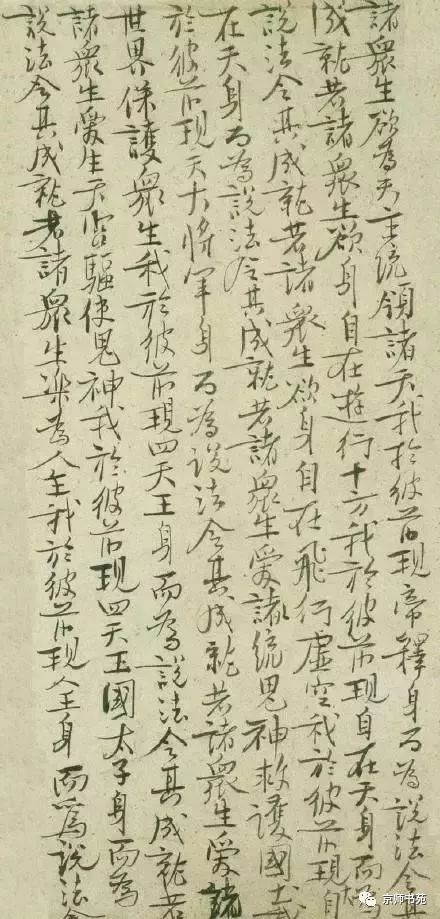 諸眾生欲為天主統領諸天我於彼前現帝釋身而為說法令其
成就若諸眾生欲身自在遊行十方我於彼前現身在天身而為
說法令其成就若諸眾生欲身自在飛行虛空我於彼前現大自
在天身而為說法令其成就若諸眾生愛諸統鬼神救護國土我
於彼前現天大將軍身而為說法令其成就若諸眾生愛
世界保護眾生我於彼前現四天王身而為說法令其成就若
諸眾生愛生天宮驅使鬼神我於彼前現四天王國太子身而為
說法令其成就若諸眾生樂為人王我於彼前現人王身而為說法令
京师书苑